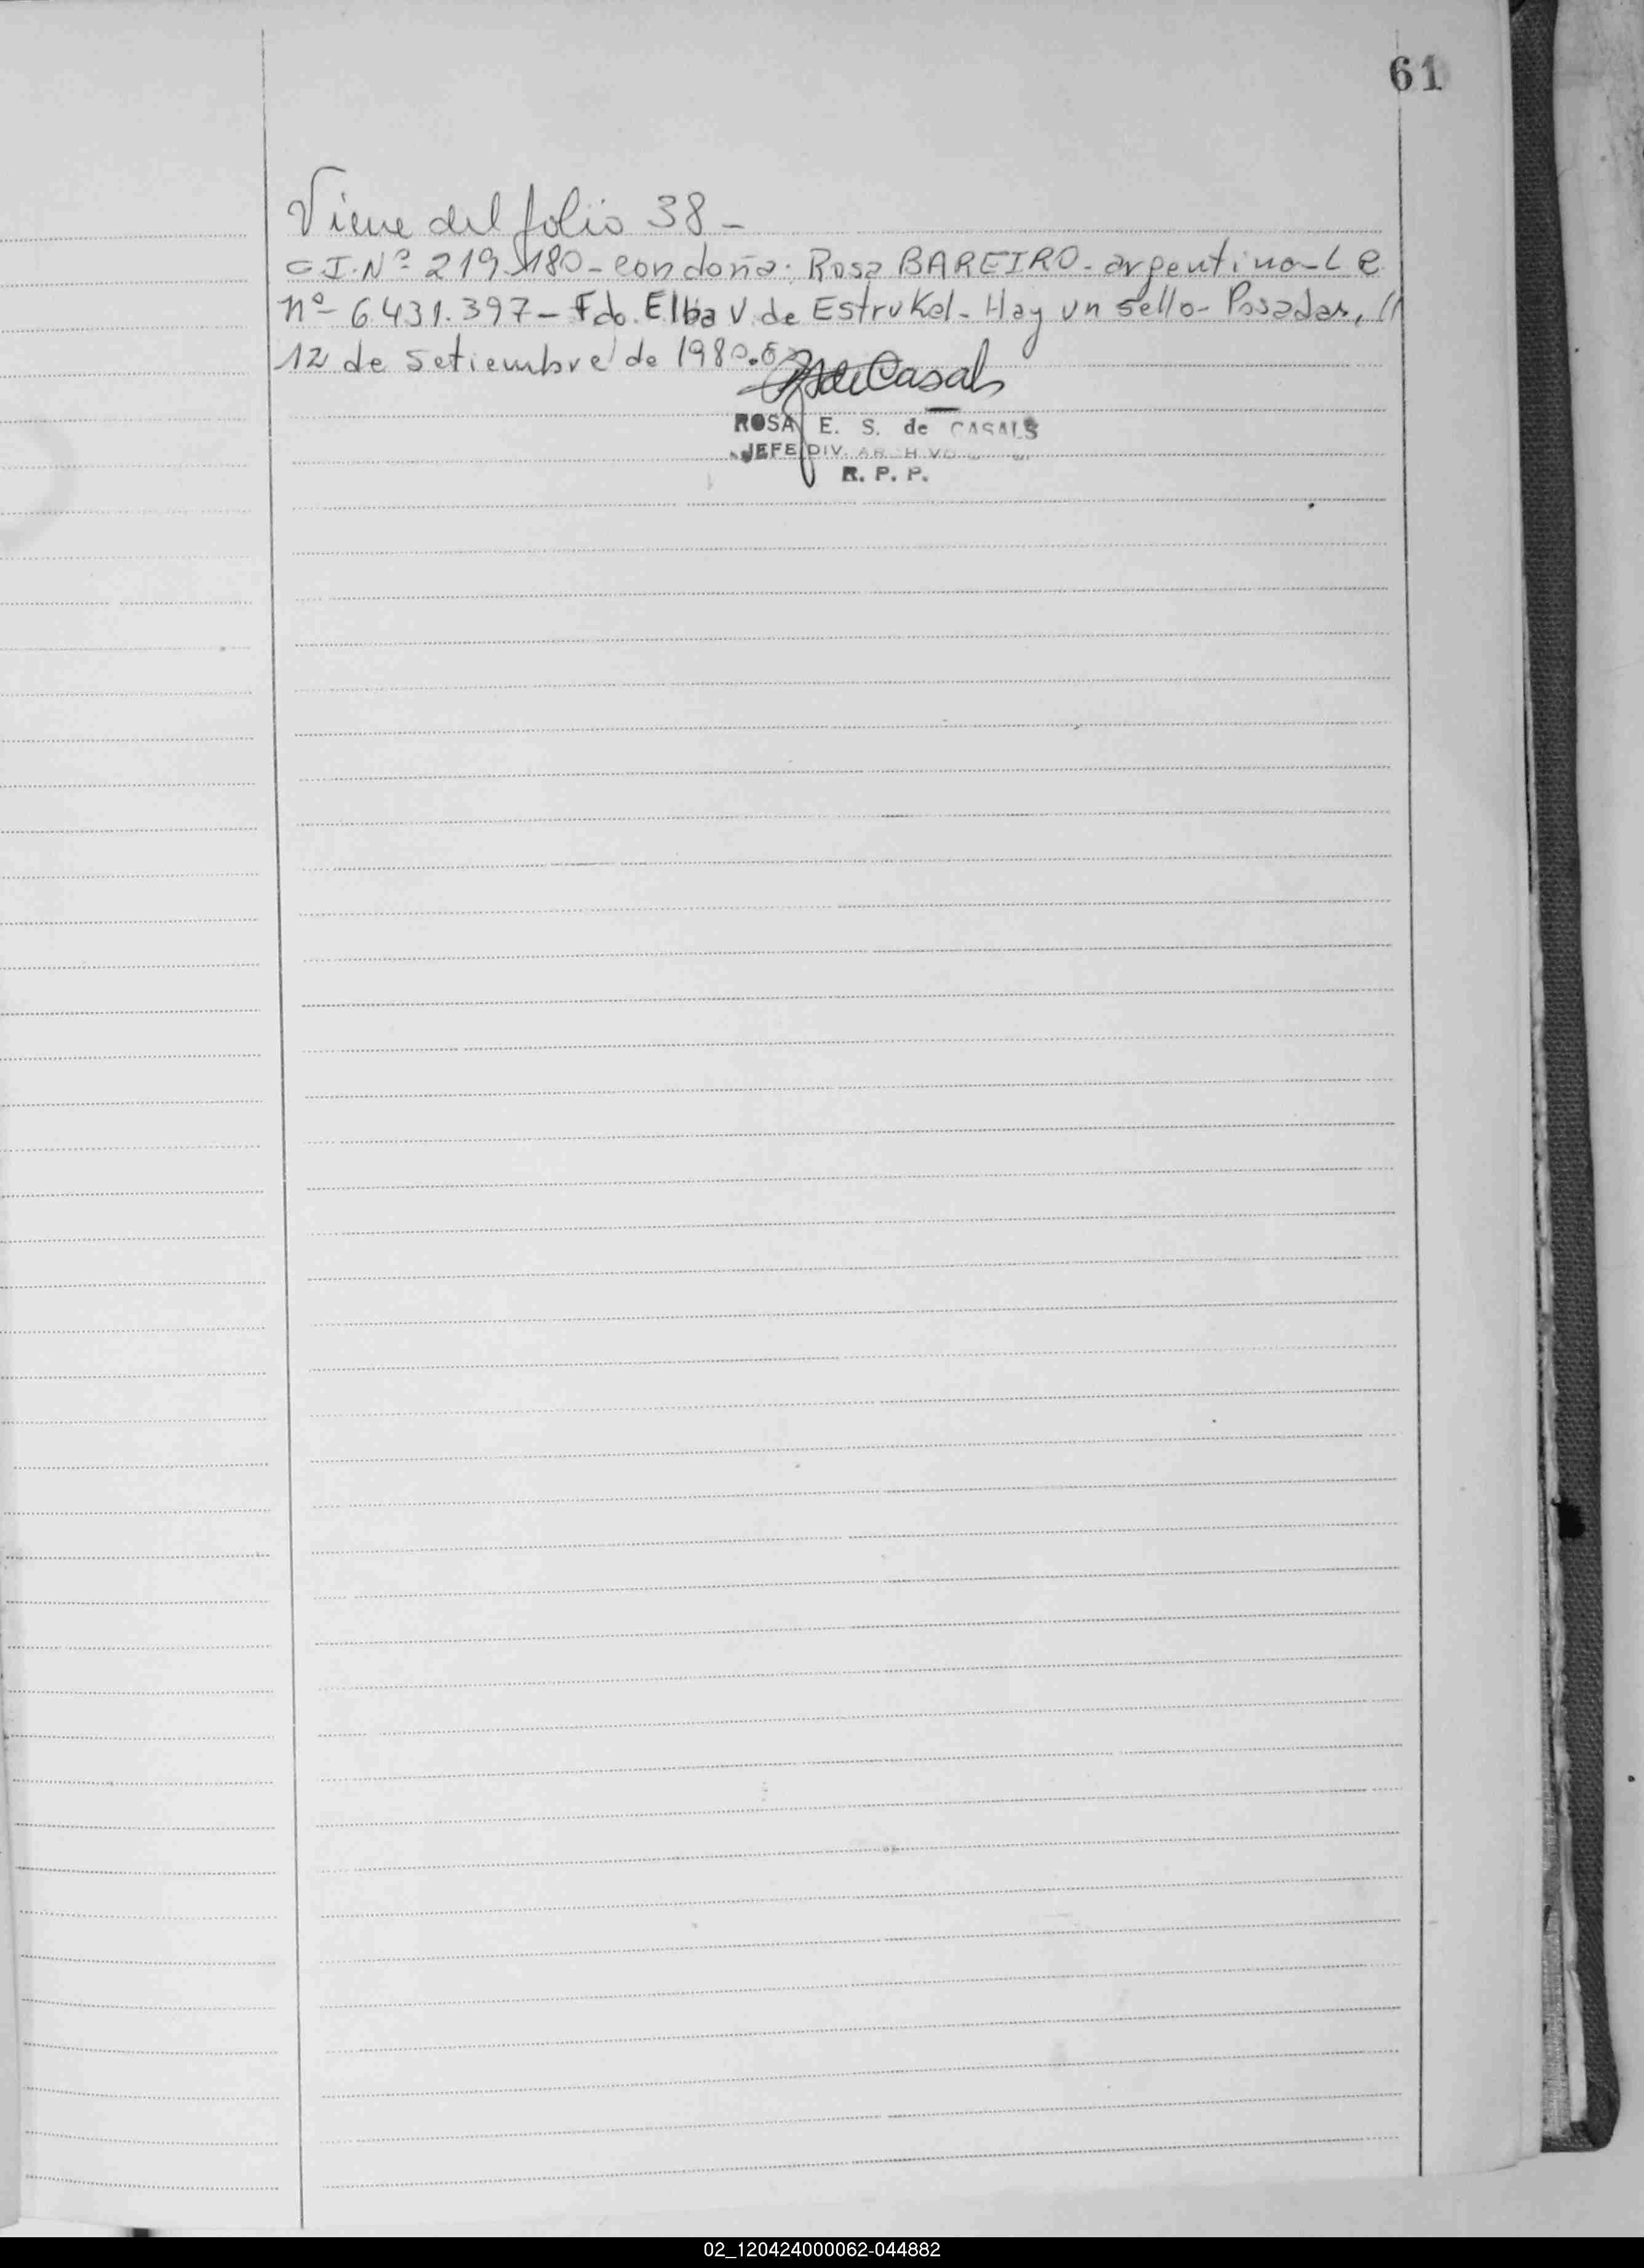 61
Viene del folio 38 -
C I. Nº 219.180 - con doña. Rosa BAREIRO - argentina - L C
nº 6.431.397 - Fdo. Elba V. de Estrukel - Hay un sello - Posadas, //
12 de setiembre de 1980.
de Casals
ROSA E. S. de CASALS
JEFE DIV. ARCHIVO
R. P. P.
02_120424000062-044882